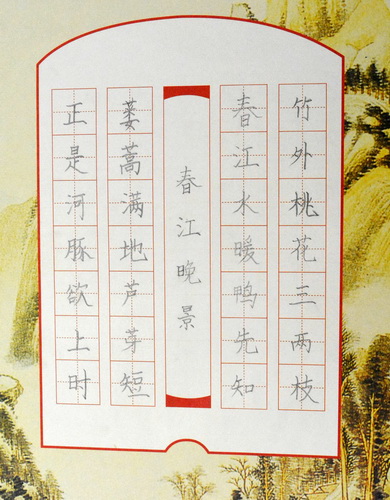 竹外桃花三两枝
春江水暖鸭先知
春江晚景
蒌蒿满地芦芽短
正是河豚欲上时